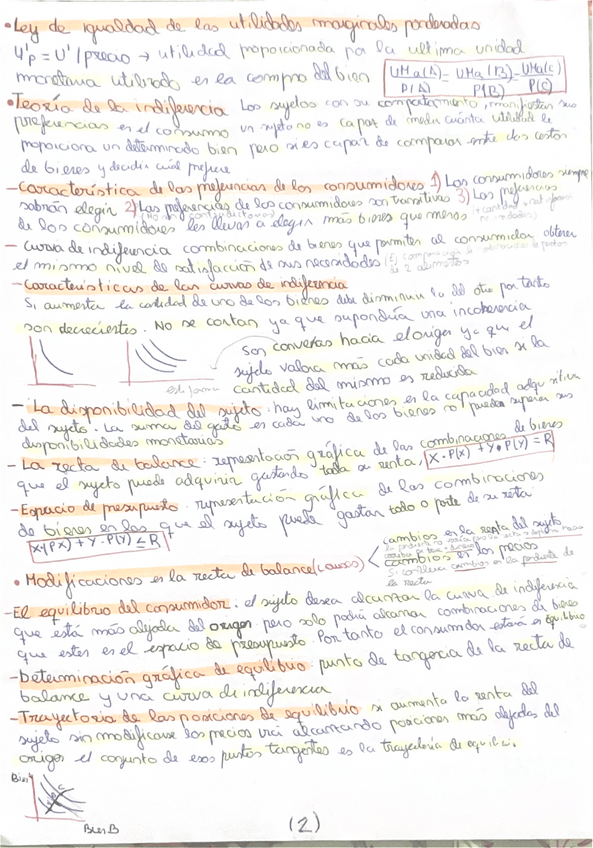 • Ley de igualdad de las utilidades marginales ponderadas
U'p = U' / precio → utilidad proporcionada por la ultima unidad
monetaria utilizada en la compra del bien UMa(A)/P(A) = UMa(B)/P(B) = UMa(C)/P(C)
• Teoría de la indiferencia Los sujetos con su comportamiento, manifiestan sus
preferencias en el consumo un sujeto no es capaz de medir cuánta utilidad le
proporciona un determinado bien pero si es capaz de comparar entre dos cestas
de bienes y decidir cuál prefiere
- Característica de las preferencias de los consumidores 1) Los consumidores siempre
sabrán elegir 2) Las preferencias de los consumidores son transitivas 3) Las preferencias
(No son contradictorios)
de los consumidores les lleva a elegir más bienes que menos
- Curva de indiferencia combinaciones de bienes que permiten al consumidor obtener
el mismo nivel de satisfacción de sus necesidades
- Características de las curvas de indiferencia
Si aumenta la cantidad de uno de los bienes debe disminuir la del otro por tanto
son decrecientes. No se cortan ya que supondría una incoherencia
Son convexas hacia el origen ya que el
sujeto valora más cada unidad del bien si la
cantidad del mismo es reducida
esta forma
- La disponibilidad del sujeto: hay limitaciones en la capacidad adquisitiva
del sujeto. La suma del gasto en cada uno de los bienes no puede superar sus
disponibilidades monetarias
- La recta de balance: representación gráfica de las combinaciones de bienes
que el sujeto puede adquirir gastando toda su renta. X·P(X) + Y·P(Y) = R
- Espacio de presupuesto: representación gráfica de las combinaciones
de bienes en las que el sujeto puede gastar todo o parte de su renta
X·(PX) + Y·P(Y) ≤ R
• Modificaciones en la recta de balance (causas)
cambios en la renta del sujeto
cambios en los precios
Si conlleva cambios en la pendiente de
la recta
- El equilibrio del consumidor: el sujeto desea alcanzar la curva de indiferencia
que está más alejada del origen pero solo podrá alcanzar combinaciones de bienes
que esten en el espacio de presupuesto. Por tanto el consumidor estará en equilibrio
- Determinación gráfica de equilibrio: punto de tangencia de la recta de
balance y una curva de indiferencia
- Trayectoria de las posiciones de equilibrio si aumenta la renta del
sujeto sin modificarse los precios irá alcanzando posiciones más alejadas del
origen el conjunto de esos puntos tangentes es la trayectoria de equilibri.
Bien
Bien B
(2)